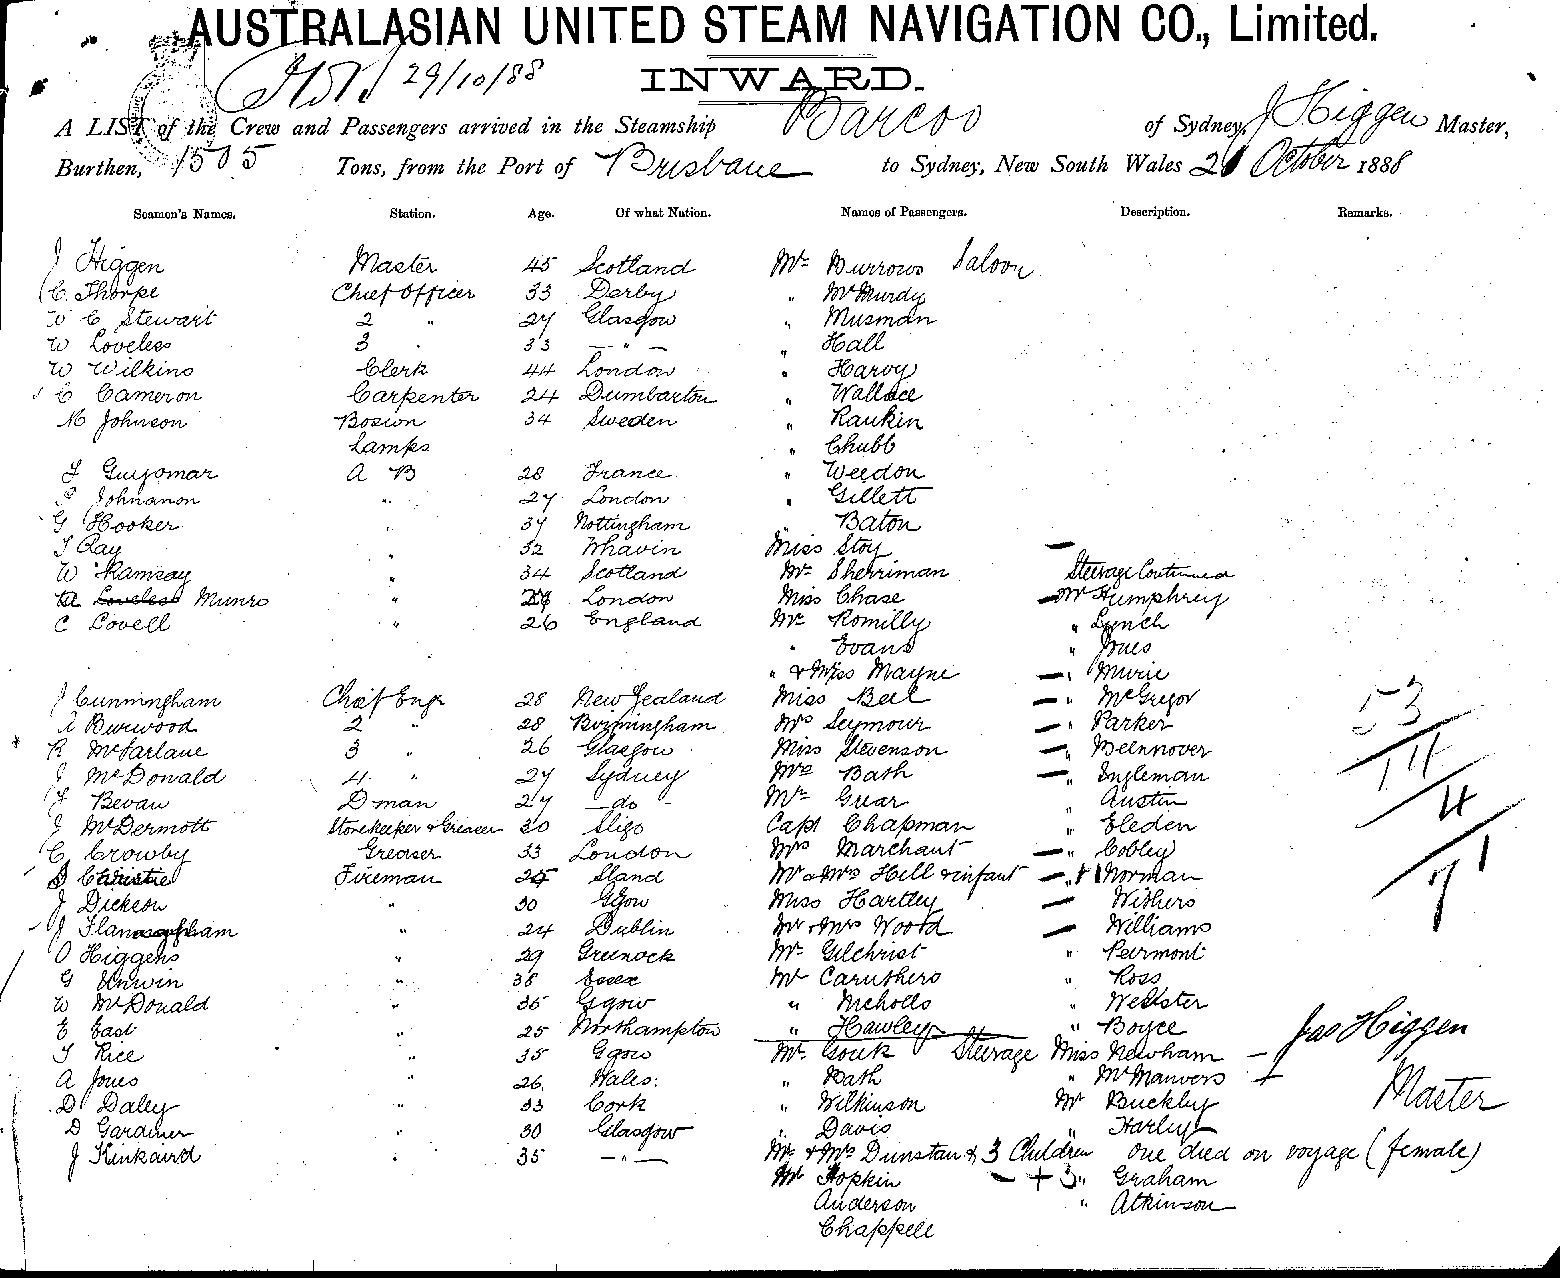 AUSTRALASIAN UNITED STEAM NAVIGATION CO., Limited.
29/10/88
INWARD.
A LIST of the Crew and Passengers arrived in the Steamship Barcoo of Sydney, J Higgen Master,
Burthen, 1505 Tons, from the Port of Brisbane to Sydney, New South Wales October 1888
Seamen's Names. Station. Age. Of what Nation. Names of Passengers. Description. Remarks.
J Higgen Master 45 Scotland Mr Burrows Saloon
C. Thorpe Chief Officer 33 Derby " McMurdy
W C Stewart 2 " 27 Glasgow " Musman
W Loveless 3 " 33 — " — " Hall
W Wilkins Clerk 44 London " Harvy
C Cameron Carpenter 24 Dumbarton " Wallace
N Johnson Bosun 34 Sweden " Rankin
Lamps " Chubb
F Guyomar A B 28 France " Weedon
Johnanon " 27 London " Gillett
G Hooker " 37 Nottingham " Baton
T Ray " 32 Whavin Miss Stoy —
W Ramsay " 34 Scotland Mr Sherriman Steerage Continued
Loveless Munro " London Miss Chase — Mr Humphrey
C Lovell " 26 England Mr Romilly " Lynch
" Evans " Jones
" & Miss Mayne — " Murie
J Cunningham Chief Engr 28 New Zealand Miss Bell — " McGregor
A Burwood 2 " 28 Birmingham Mrs Seymour — " Parker 53
R McFarlane 3 " 26 Glasgow Miss Stevenson — " Beennover
J McDonald 4 " 27 Sydney Mrs Bath — " Engleman 14
F Bevan D man 27 — do — Mr Grear " Austin 4
J McDermott Storekeeper & Greaser 30 Sligo Capt Chapman " Eleden
C Crowby Greaser 33 London Mrs Marchant — " Cobley
Christie Fireman Sland Mr & Mrs Hill & infant — " Norman 71
J Dickson " 30 Ggow Miss Hartley — Withers
J " 24 Dublin Mr & Mrs Wood — Williams
O Higgens " 29 Greenock Mr Gilchrist " Peermont
G Unwin " 38 Essex Mr Caruthers " Ross
W McDonald " 35 Ggow " Nicholls " Webster
E East " 25 Northampton " Hawley " Boyce Jas Higgen
T Rice " 35 Ggow Mr Gouk Steerage Miss Newham —
A Jones " 26 Wales. " Bath " McManvers +
D Daley " 33 Cork " Wilkinson Mr Buckley Master
D Gardiner " 30 Glasgow " Davis " Harley
J Kinkaird " 35 — " — Mr & Mrs Dunstan & 3 Children one died on voyage (female)
Mr Hopkin — + 3 " Graham
Anderson " Atkinson
Chappell